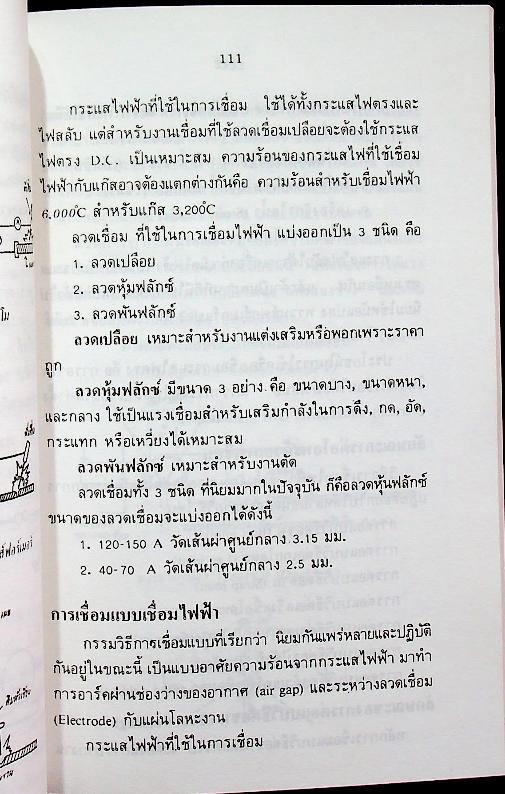 111
กระแสไฟฟ้าที่ใช้ในการเชื่อม ใช้ได้ทั้งกระแสไฟตรงและ
ไฟสลับ แต่สำหรับงานเชื่อมที่ใช้ลวดเชื่อมเปลือยจะต้องใช้กระแส
ไฟตรง D.C. เป็นเหมาะสม ความร้อนของกระแสไฟที่ใช้เชื่อม
ไฟฟ้ากับแก๊สอาจต้องแตกต่างกันคือ ความร้อนสำหรับเชื่อมไฟฟ้า
6,000°C สำหรับแก๊ส 3,200°C
ลวดเชื่อม ที่ใช้ในการเชื่อมไฟฟ้า แบ่งออกเป็น 3 ชนิด คือ
1. ลวดเปลือย
2. ลวดหุ้มฟลักซ์
3. ลวดพันฟลักซ์
ลวดเปลือย เหมาะสำหรับงานแต่งเสริมหรือพอกเพราะราคา
ถูก
ลวดหุ้มฟลักซ์ มีขนาด 3 อย่าง คือ ขนาดบาง, ขนาดหนา,
และกลาง ใช้เป็นแรงเชื่อมสำหรับเสริมกำลังในการดึง, กด, อัด,
กระแทก หรือเหวี่ยงได้เหมาะสม
ลวดพันฟลักซ์ เหมาะสำหรับงานตัด
ลวดเชื่อมทั้ง 3 ชนิด ที่นิยมมากในปัจจุบัน ก็คือลวดหุ้นฟลักซ์
ขนาดของลวดเชื่อมจะแบ่งออกได้ดังนี้
1. 120-150 A วัดเส้นผ่าศูนย์กลาง 3.15 มม.
2. 40-70 A วัดเส้นผ่าศูนย์กลาง 2.5 มม.
การเชื่อมแบบเชื่อมไฟฟ้า
กรรมวิธีการเชื่อมแบบที่เรียกว่า นิยมกันแพร่หลายและปฏิบัติ
กันอยู่ในขณะนี้ เป็นแบบอาศัยความร้อนจากกระแสไฟฟ้า มาทำ
การอาร์คผ่านช่องว่างของอากาศ (air gap) และระหว่างลวดเชื่อม
(Electrode) กับแผ่นโลหะงาน
กระแสไฟฟ้าที่ใช้ในการเชื่อม